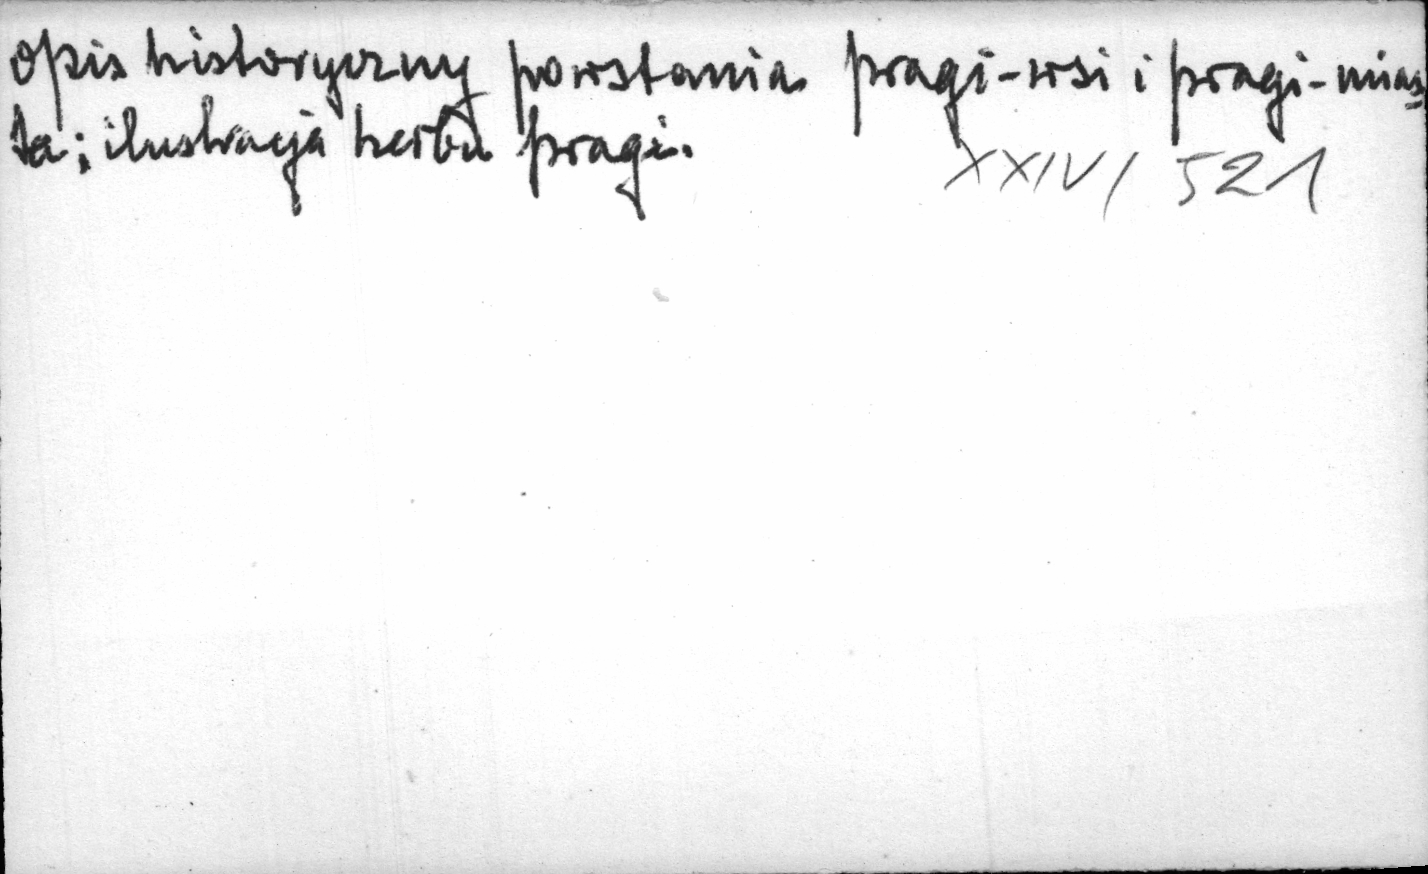 opis historyczny powstania pragi-wsi i pragi-mias
ta; ilustracja herbu pragi.
XXIV/521